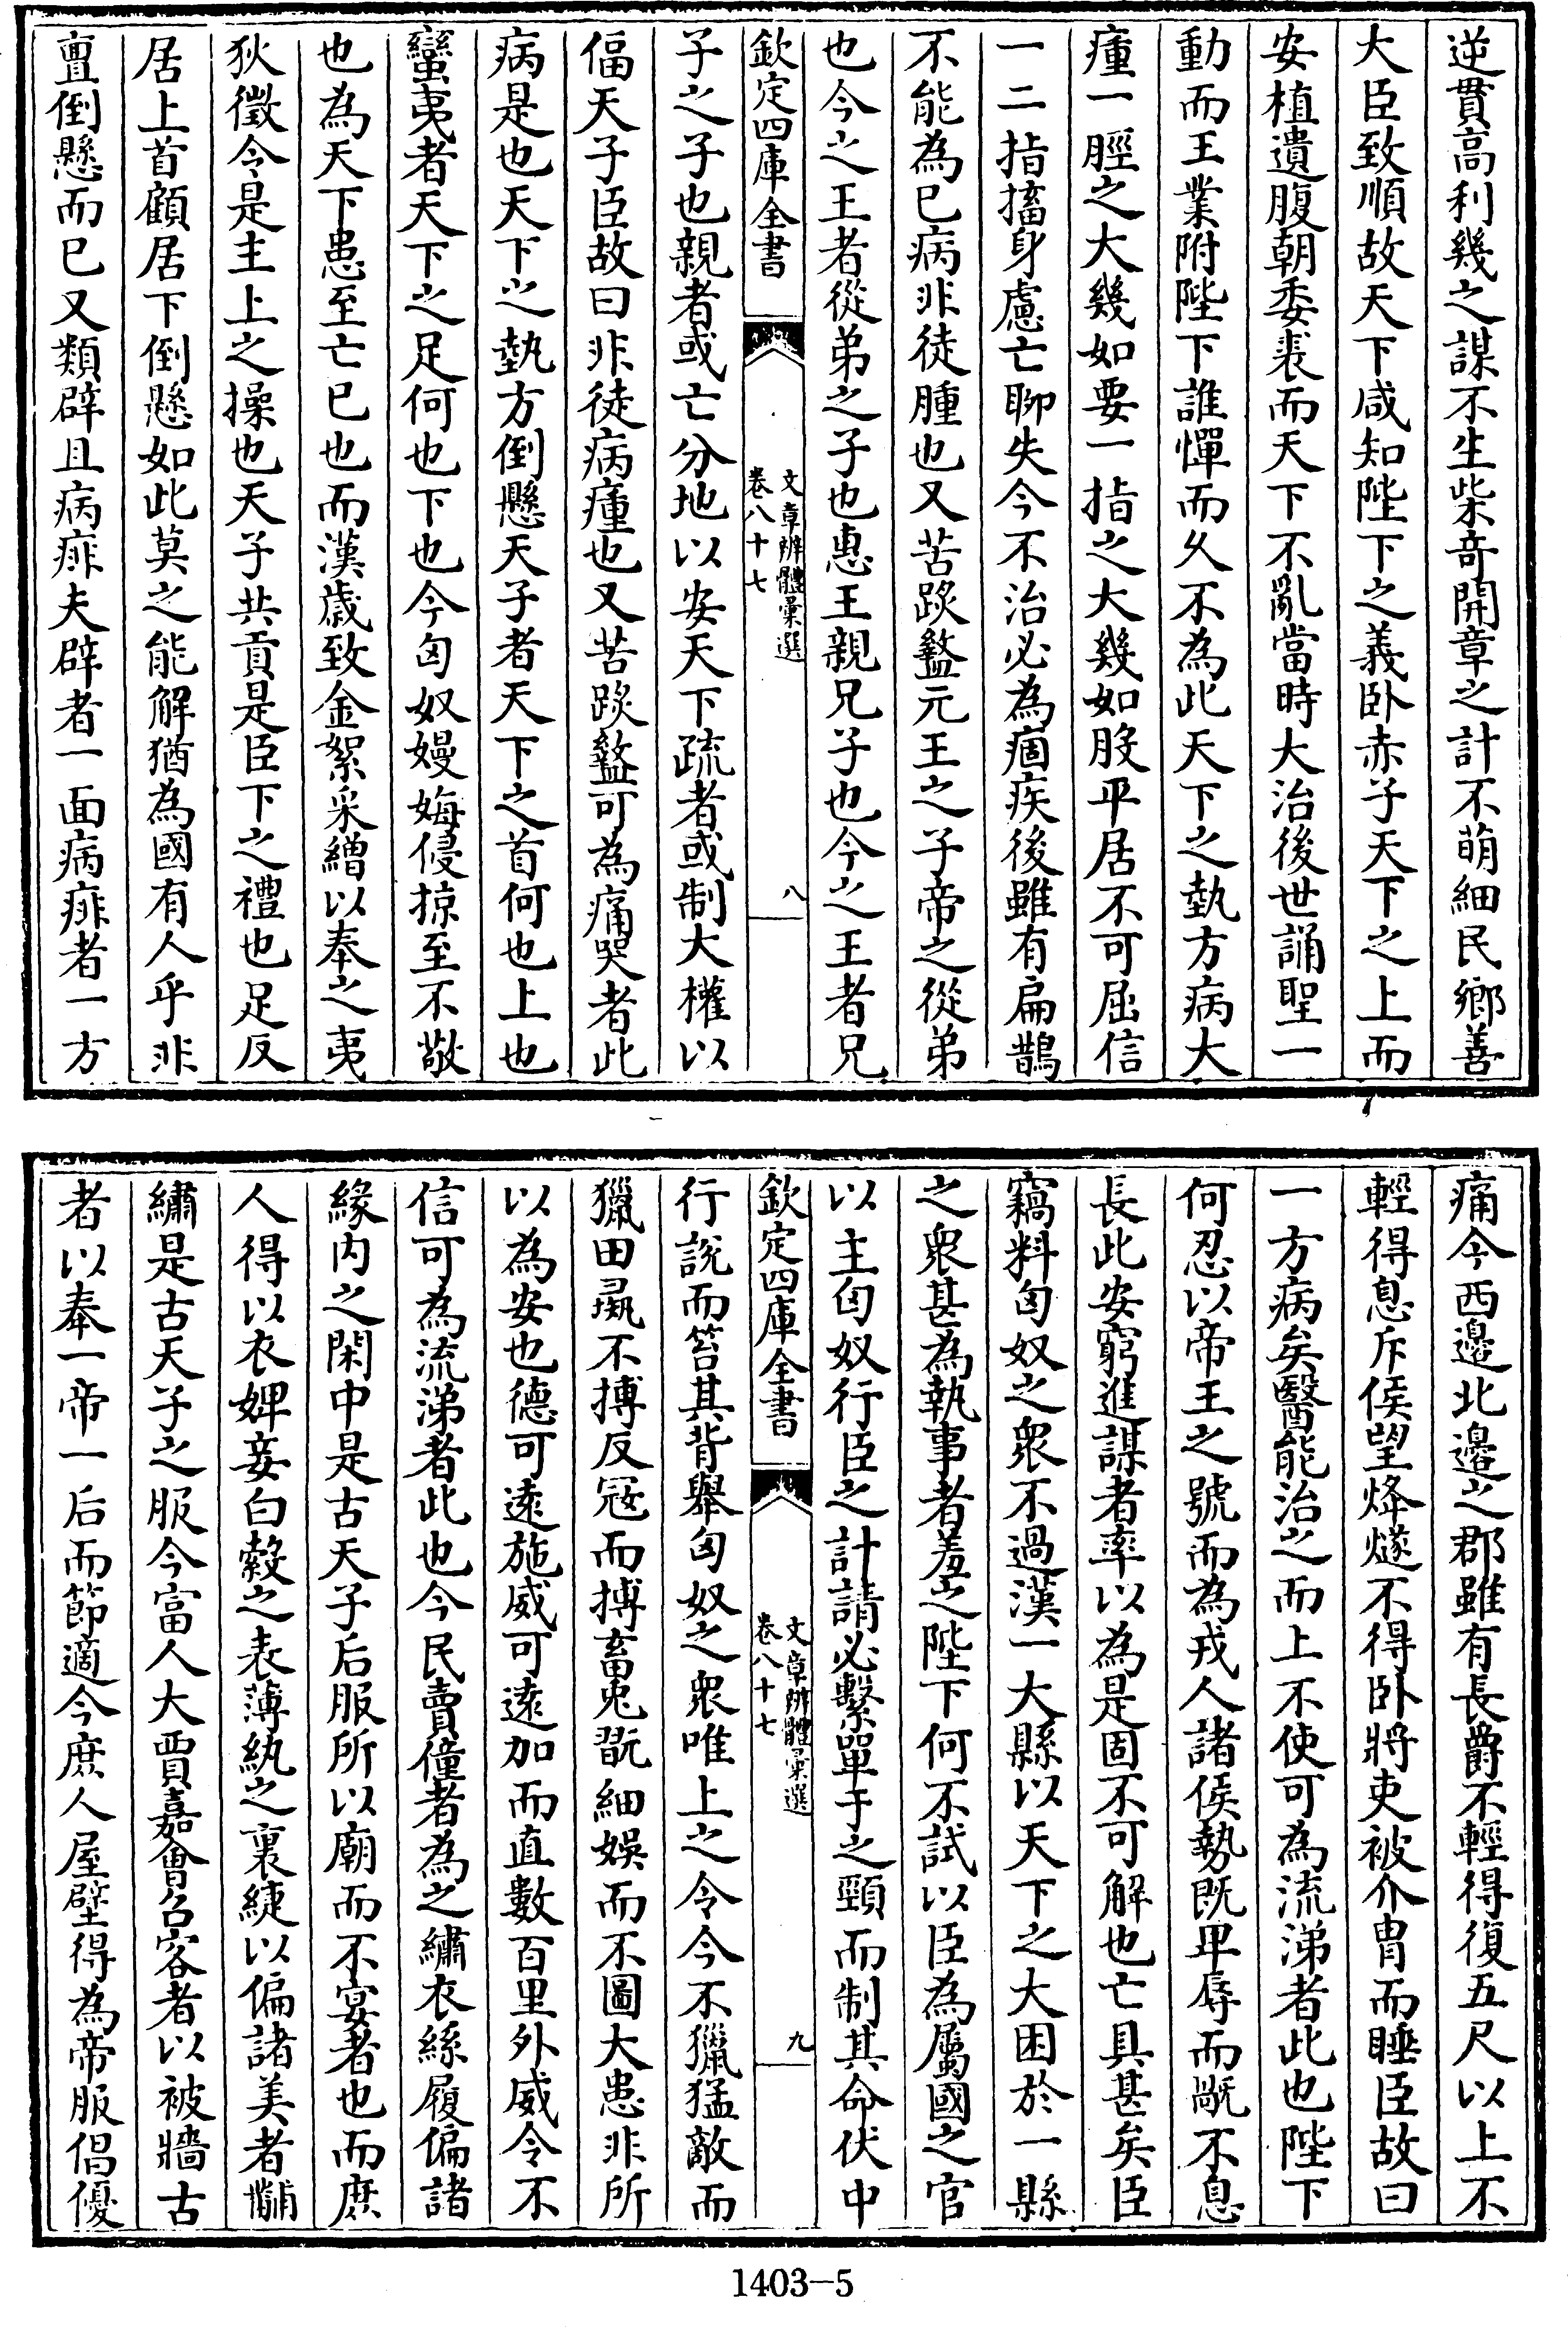 逆貫高利幾之謀不生柴奇開章之計不萌細民鄉善
大臣致順故天下咸知陛下之義卧赤子天下之上而
安植遺腹朝委裘而天下不亂當時大治後世誦聖一
動而王業附陛下誰憚而久不為此天下之埶方病大
瘇一脛之大幾如要一指之大幾如股平居不可屈信
一二指搐身慮亡聊失今不治必為痼疾後雖有扁鵲
不能為已病非徒腫也又苦䟴盭元王之子帝之從弟
也今之王者從弟之子也惠王親兄子也今之王者兄
欽定四庫全書
文章辨體彙選
卷八十七
八
子之子也親者或亡分地以安天下疏者或制大權以
偪天子臣故曰非徒病瘇也又苦䟴盭可為痛哭者此
病是也天下之埶方倒懸天子者天下之首何也上也
蠻夷者天下之足何也下也今匈奴嫚娒侵掠至不敬
也為天下患至亡已也而漢歲致金絮采繒以奉之夷
狄徵令是主上之操也天子共貢是臣下之禮也足反
居上首顧居下倒懸如此莫之能解猶為國有人乎非
亶倒懸而已又類辟且病痱夫辟者一面病痱者一方
痛今西邊北邊之郡雖有長爵不輕得復五尺以上不
輕得息斥候望烽燧不得卧將吏被介胄而睡臣故曰
一方病矣醫能治之而上不使可為流涕者此也陛下
何忍以帝王之號而為戎人諸侯勢既卑辱而旤不息
長此安窮進謀者率以為是固不可解也亡具甚矣臣
竊料匈奴之衆不過漢一大縣以天下之大困於一縣
之衆甚為執事者羞之陛下何不試以臣為屬國之官
以主匈奴行臣之計請必繫單于之頸而制其命伏中
欽定四庫全書
文章辨體彙選
卷八十七
九
行說而笞其背舉匈奴之衆唯上之令今不獵猛敵而
獵田彘不搏反宼而搏畜兎翫細娛而不圖大患非所
以為安也德可遠施威可遠加而直數百里外威令不
信可為流涕者此也今民賣僮者為之繡衣絲履偏諸
緣内之閑中是古天子后服所以廟而不宴者也而庶
人得以衣婢妾白縠之表薄紈之裏緁以偏諸美者黼
繡是古天子之服今富人大賈嘉會召客者以被牆古
者以奉一帝一后而節適今庶人屋壁得為帝服倡優
1403—5